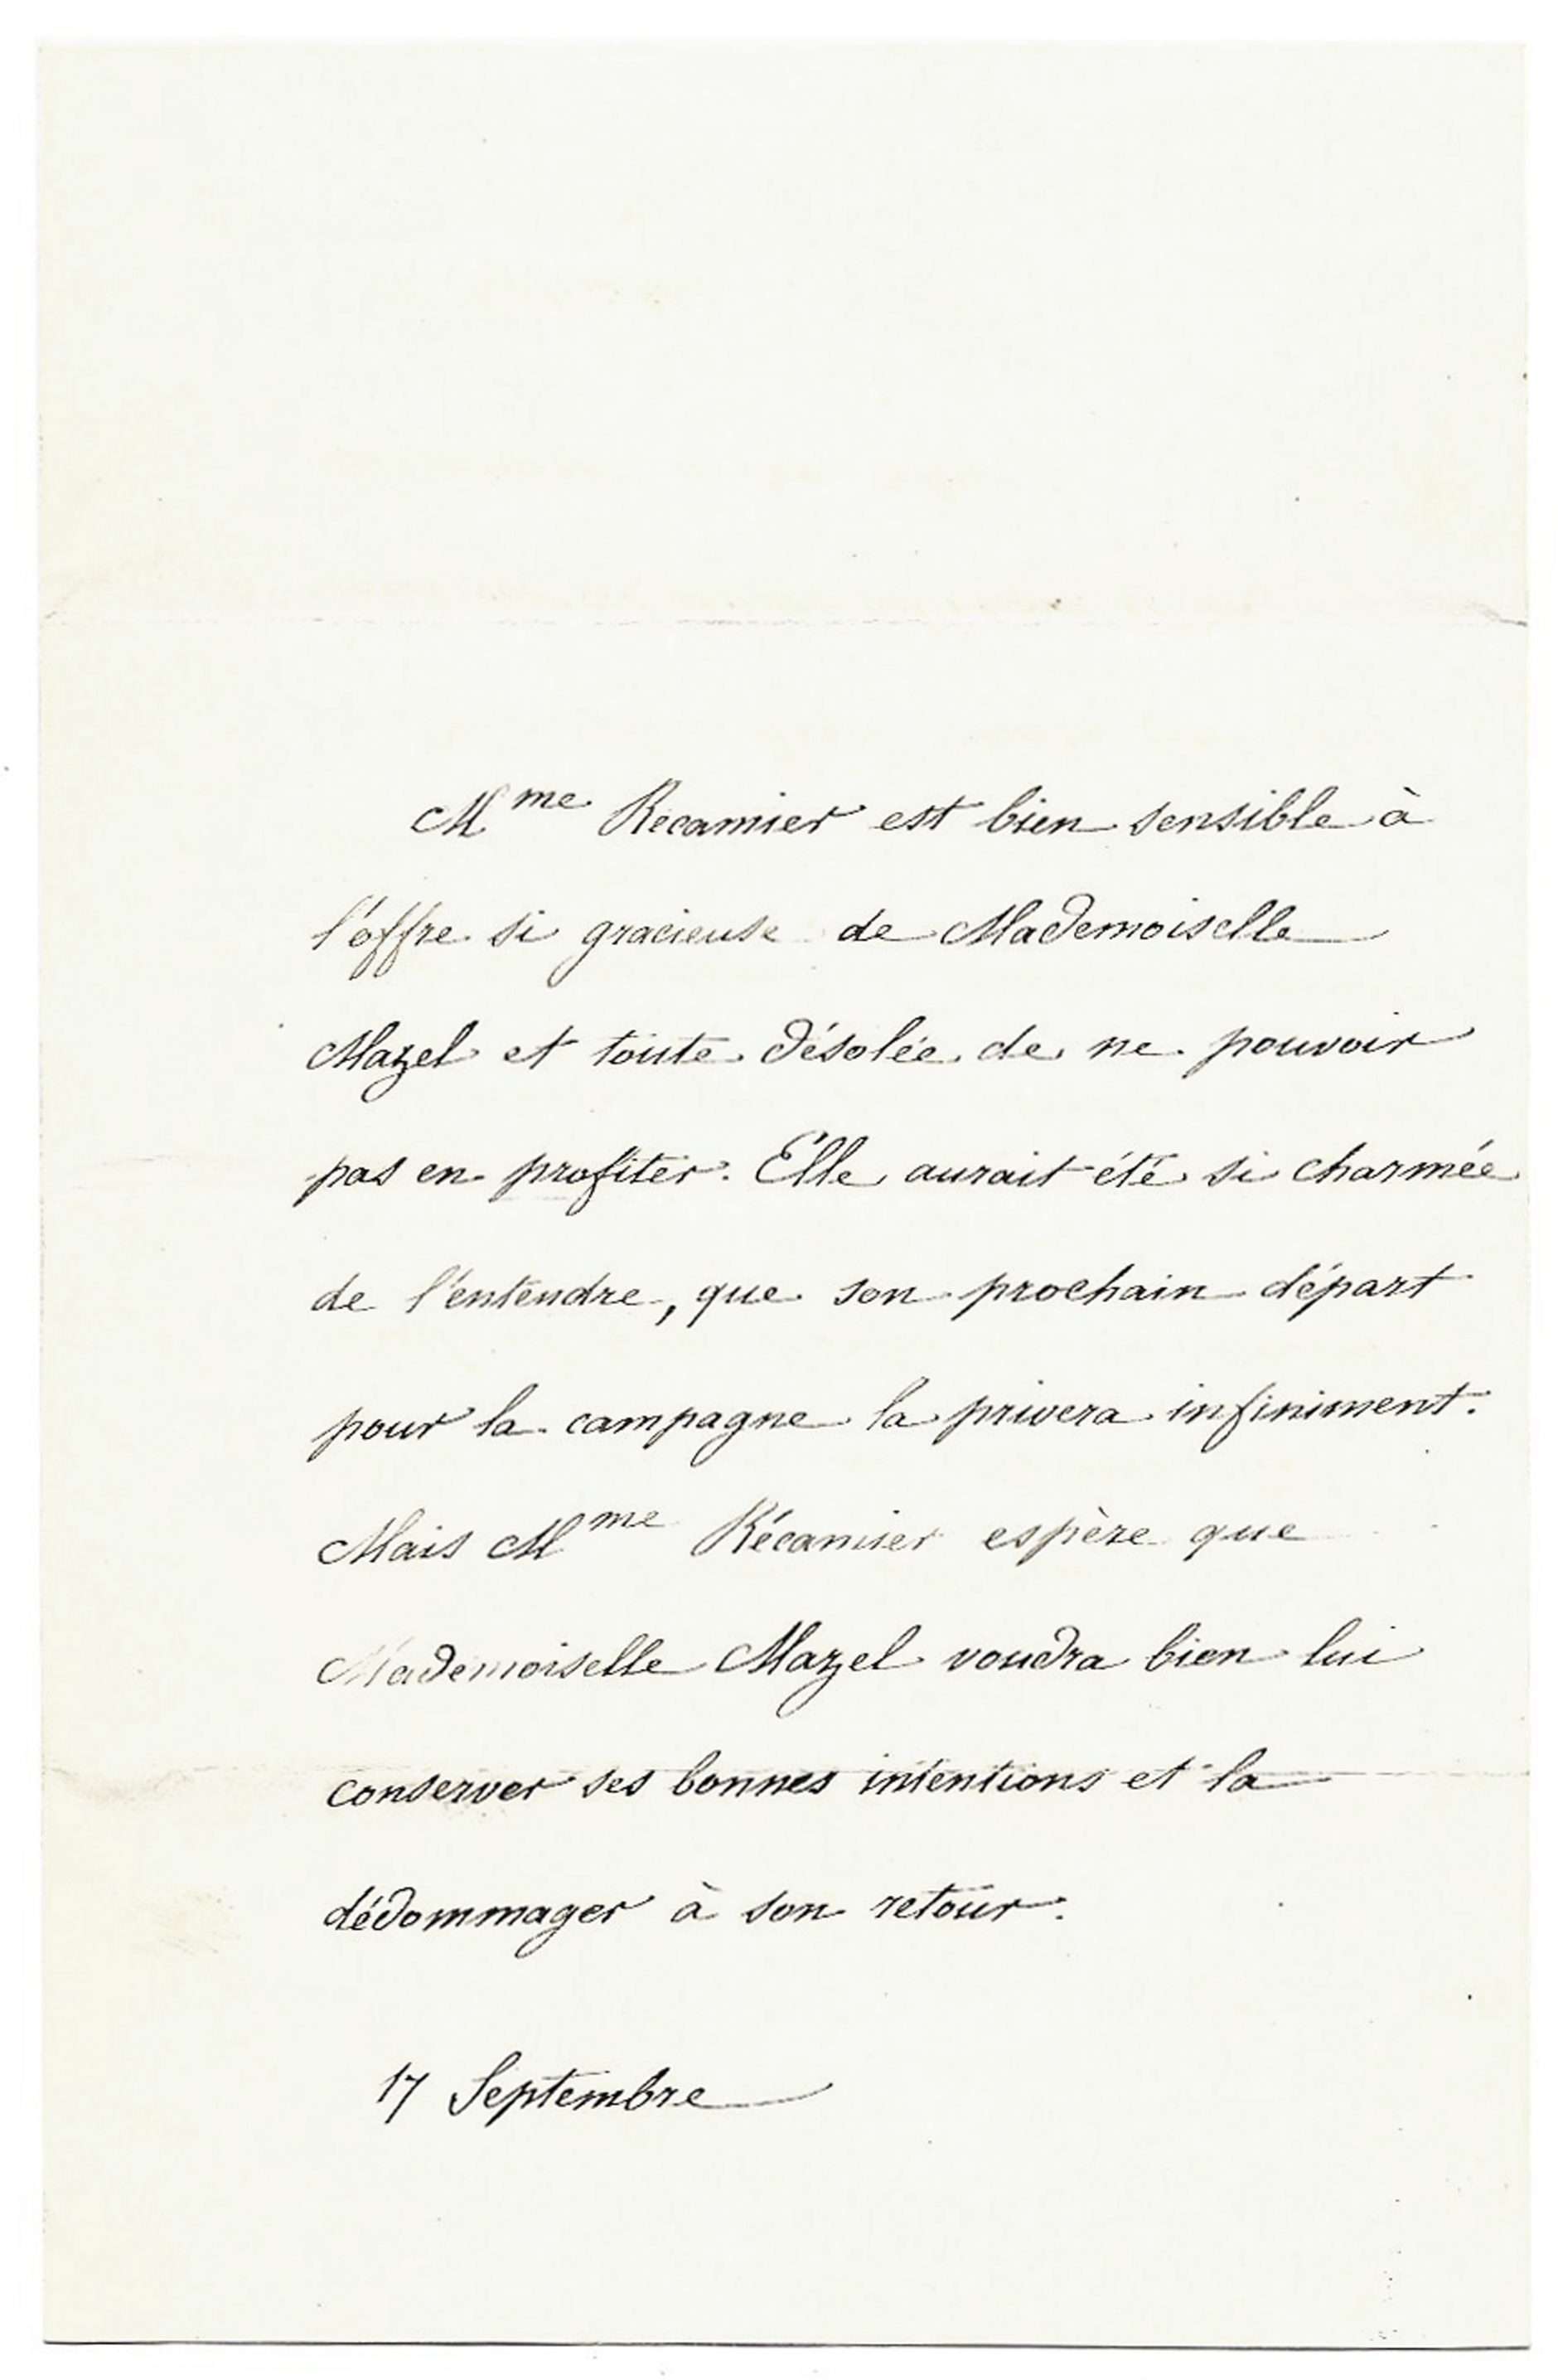 Mme Recamier est bien sensible à
l'offre si gracieuse de Mademoiselle
Mazel et toute désolée de ne pouvoir
pas en profiter. Elle aurait été si charmée
de l'entendre, que son prochain départ
pour la campagne la privera infiniment.
Mais Mme Récamier espère que
Mademoiselle Mazel voudra bien lui
conserver ses bonnes intentions et la
dédommager à son retour.
17 Septembre